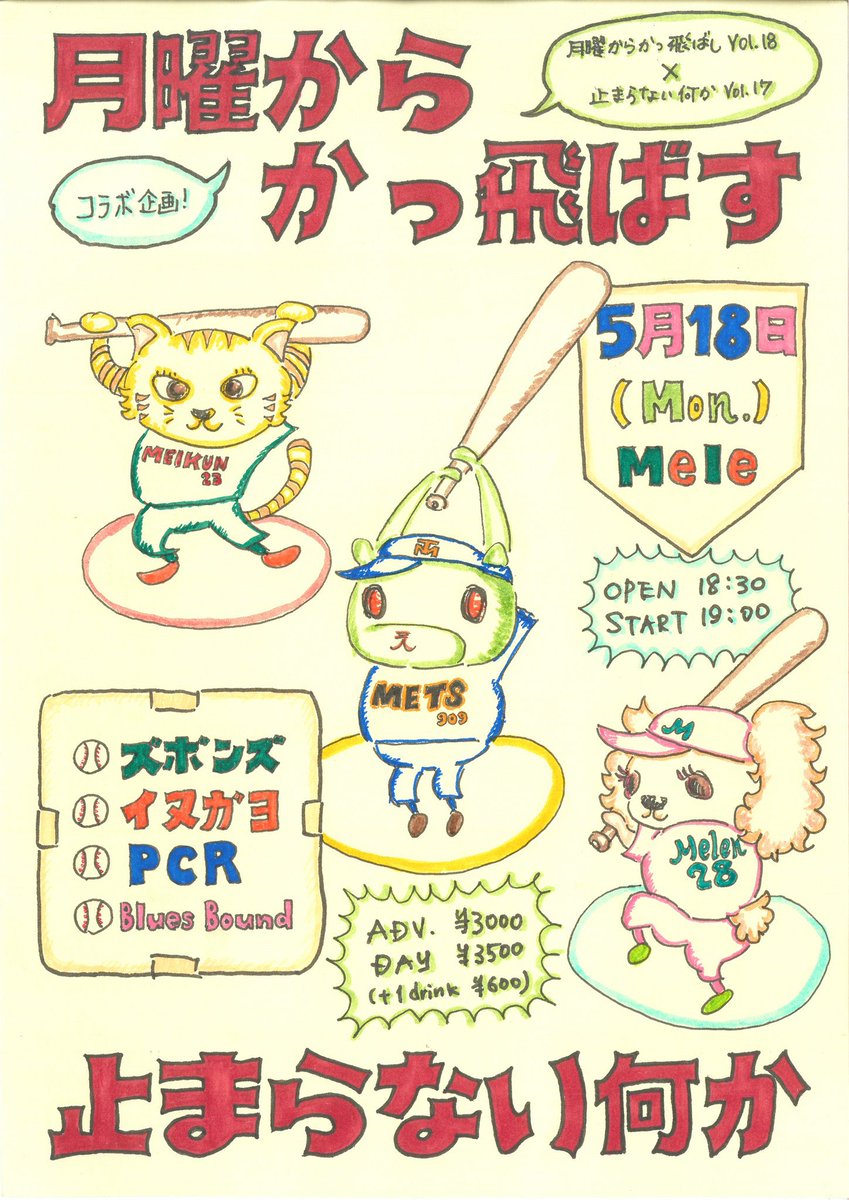 月曜から
かっ飛ばす
月曜からかっ飛ばし Vol.18
×
止まらない何か Vol.17
コラボ企画!
5月18日
(Mon.)
Mele
MEIKUN
23
OPEN 18:30
START 19:00
TM
え
METS
909
M
Melen
28
ズボンズ
イヌガヨ
PCR
Blues Bound
ADV. ¥3000
DAY ¥3500
(+1drink ¥600)
止まらない何か